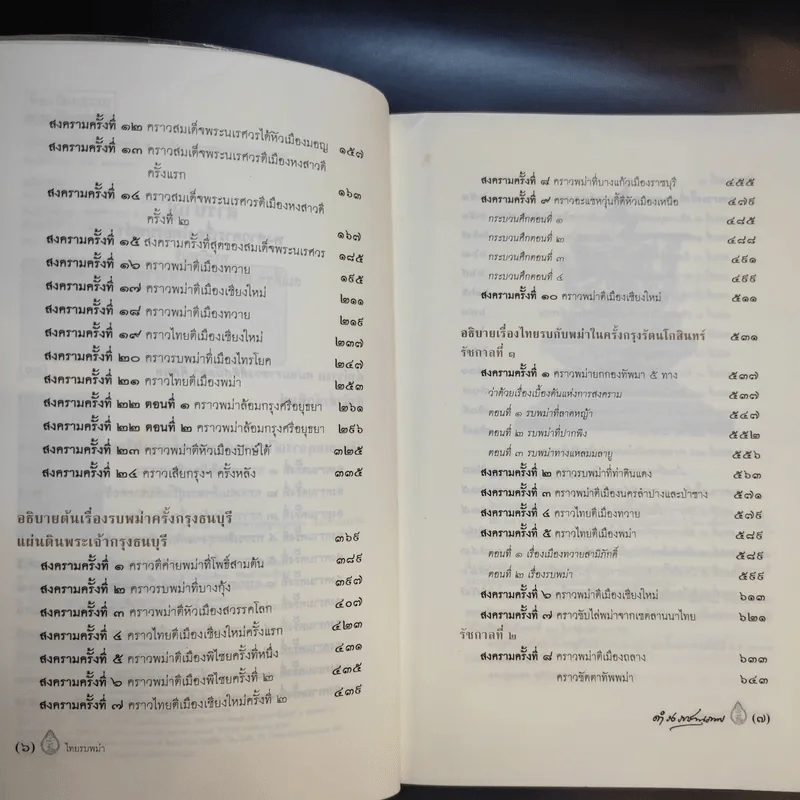 สงครามครั้งที่ ๑๒ คราวสมเด็จพระนเรศวรได้หัวเมืองมอญ ๑๕๗
สงครามครั้งที่ ๑๓ คราวสมเด็จพระนเรศวรตีเมืองหงสาวดี
ครั้งแรก ๑๖๓
สงครามครั้งที่ ๑๔ คราวสมเด็จพระนเรศวรตีเมืองหงสาวดี
ครั้งที่ ๒ ๑๖๗
สงครามครั้งที่ ๑๕ สงครามครั้งที่สุดของสมเด็จพระนเรศวร ๑๘๕
สงครามครั้งที่ ๑๖ คราวพม่าตีเมืองทวาย ๑๙๕
สงครามครั้งที่ ๑๗ คราวพม่าตีเมืองเชียงใหม่ ๒๑๑
สงครามครั้งที่ ๑๘ คราวพม่าตีเมืองทวาย ๒๑๙
สงครามครั้งที่ ๑๙ คราวไทยตีเมืองเชียงใหม่ ๒๓๗
สงครามครั้งที่ ๒๐ คราวรบพม่าที่เมืองไทรโยค ๒๔๗
สงครามครั้งที่ ๒๑ คราวไทยตีเมืองพม่า ๒๕๓
สงครามครั้งที่ ๒๒ ตอนที่ ๑ คราวพม่าล้อมกรุงศรีอยุธยา ๒๖๑
สงครามครั้งที่ ๒๒ ตอนที่ ๒ คราวพม่าล้อมกรุงศรีอยุธยา ๒๙๖
สงครามครั้งที่ ๒๓ คราวพม่าตีหัวเมืองปักษ์ใต้ ๓๒๕
สงครามครั้งที่ ๒๔ คราวเสียกรุงฯ ครั้งหลัง ๓๓๕
อธิบายต้นเรื่องรบพม่าครั้งกรุงธนบุรี
แผ่นดินพระเจ้ากรุงธนบุรี ๓๖๙
สงครามครั้งที่ ๑ คราวตีค่ายพม่าที่โพธิ์สามต้น ๓๘๙
สงครามครั้งที่ ๒ คราวรบพม่าที่บางกุ้ง ๓๙๗
สงครามครั้งที่ ๓ คราวพม่าตีหัวเมืองสวรรคโลก ๔๐๗
สงครามครั้งที่ ๔ คราวไทยตีเมืองเชียงใหม่ครั้งแรก ๔๒๓
สงครามครั้งที่ ๕ คราวพม่าตีเมืองพิไชยครั้งที่หนึ่ง ๔๓๑
สงครามครั้งที่ ๖ คราวพม่าตีเมืองพิไชยครั้งที่ ๒ ๔๓๕
สงครามครั้งที่ ๗ คราวไทยตีเมืองเชียงใหม่ครั้งที่ ๒ ๔๓๙
(๖) ไทยรบพม่า
สงครามครั้งที่ ๘ คราวพม่าที่บางแก้วเมืองราชบุรี ๔๕๕
สงครามครั้งที่ ๙ คราวอะแซหวุ่นกี้ตีหัวเมืองเหนือ ๔๗๙
กระบวนศึกตอนที่ ๑ ๔๘๕
กระบวนศึกตอนที่ ๒ ๔๘๘
กระบวนศึกตอนที่ ๓ ๔๙๑
กระบวนศึกตอนที่ ๔ ๔๙๙
สงครามครั้งที่ ๑๐ คราวพม่าตีเมืองเชียงใหม่ ๕๑๑
อธิบายเรื่องไทยรบกับพม่าในครั้งกรุงรัตนโกสินทร์ ๕๓๑
รัชกาลที่ ๑
สงครามครั้งที่ ๑ คราวพม่ายกกองทัพมา ๕ ทาง ๕๓๗
ว่าด้วยเรื่องเบื้องต้นแห่งการสงคราม ๕๓๗
ตอนที่ ๑ รบพม่าที่ลาดหญ้า ๕๔๗
ตอนที่ ๒ รบพม่าที่ปากพิง ๕๕๒
ตอนที่ ๓ รบพม่าทางแหลมมลายู ๕๕๖
สงครามครั้งที่ ๒ คราวรบพม่าที่ท่าดินแดง ๕๖๓
สงครามครั้งที่ ๓ คราวพม่าตีเมืองนครลำปางและป่าซาง ๕๗๑
สงครามครั้งที่ ๔ คราวไทยตีเมืองทวาย ๕๗๙
สงครามครั้งที่ ๕ คราวไทยตีเมืองพม่า ๕๘๙
ตอนที่ ๑ เรื่องเมืองทวายสามิภักดิ์ ๕๘๙
ตอนที่ ๒ เรื่องรบพม่า ๕๙๙
สงครามครั้งที่ ๖ คราวพม่าตีเมืองเชียงใหม่ ๖๑๓
สงครามครั้งที่ ๗ คราวขับไล่พม่าจากเขตลานนาไทย ๖๒๑
รัชกาลที่ ๒
สงครามครั้งที่ ๘ คราวพม่าตีเมืองถลาง ๖๓๓
คราวขัดตาทัพพม่า ๖๔๓
(๗)